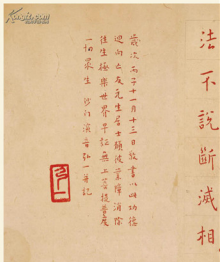 法不説断滅相
歳次丙子十一月十三日敬書以此功德
迴向亡友元生居士願彼業障消除
往生極樂世界早証無上菩提普度
一切衆生 沙门演音弘一并記
弘一